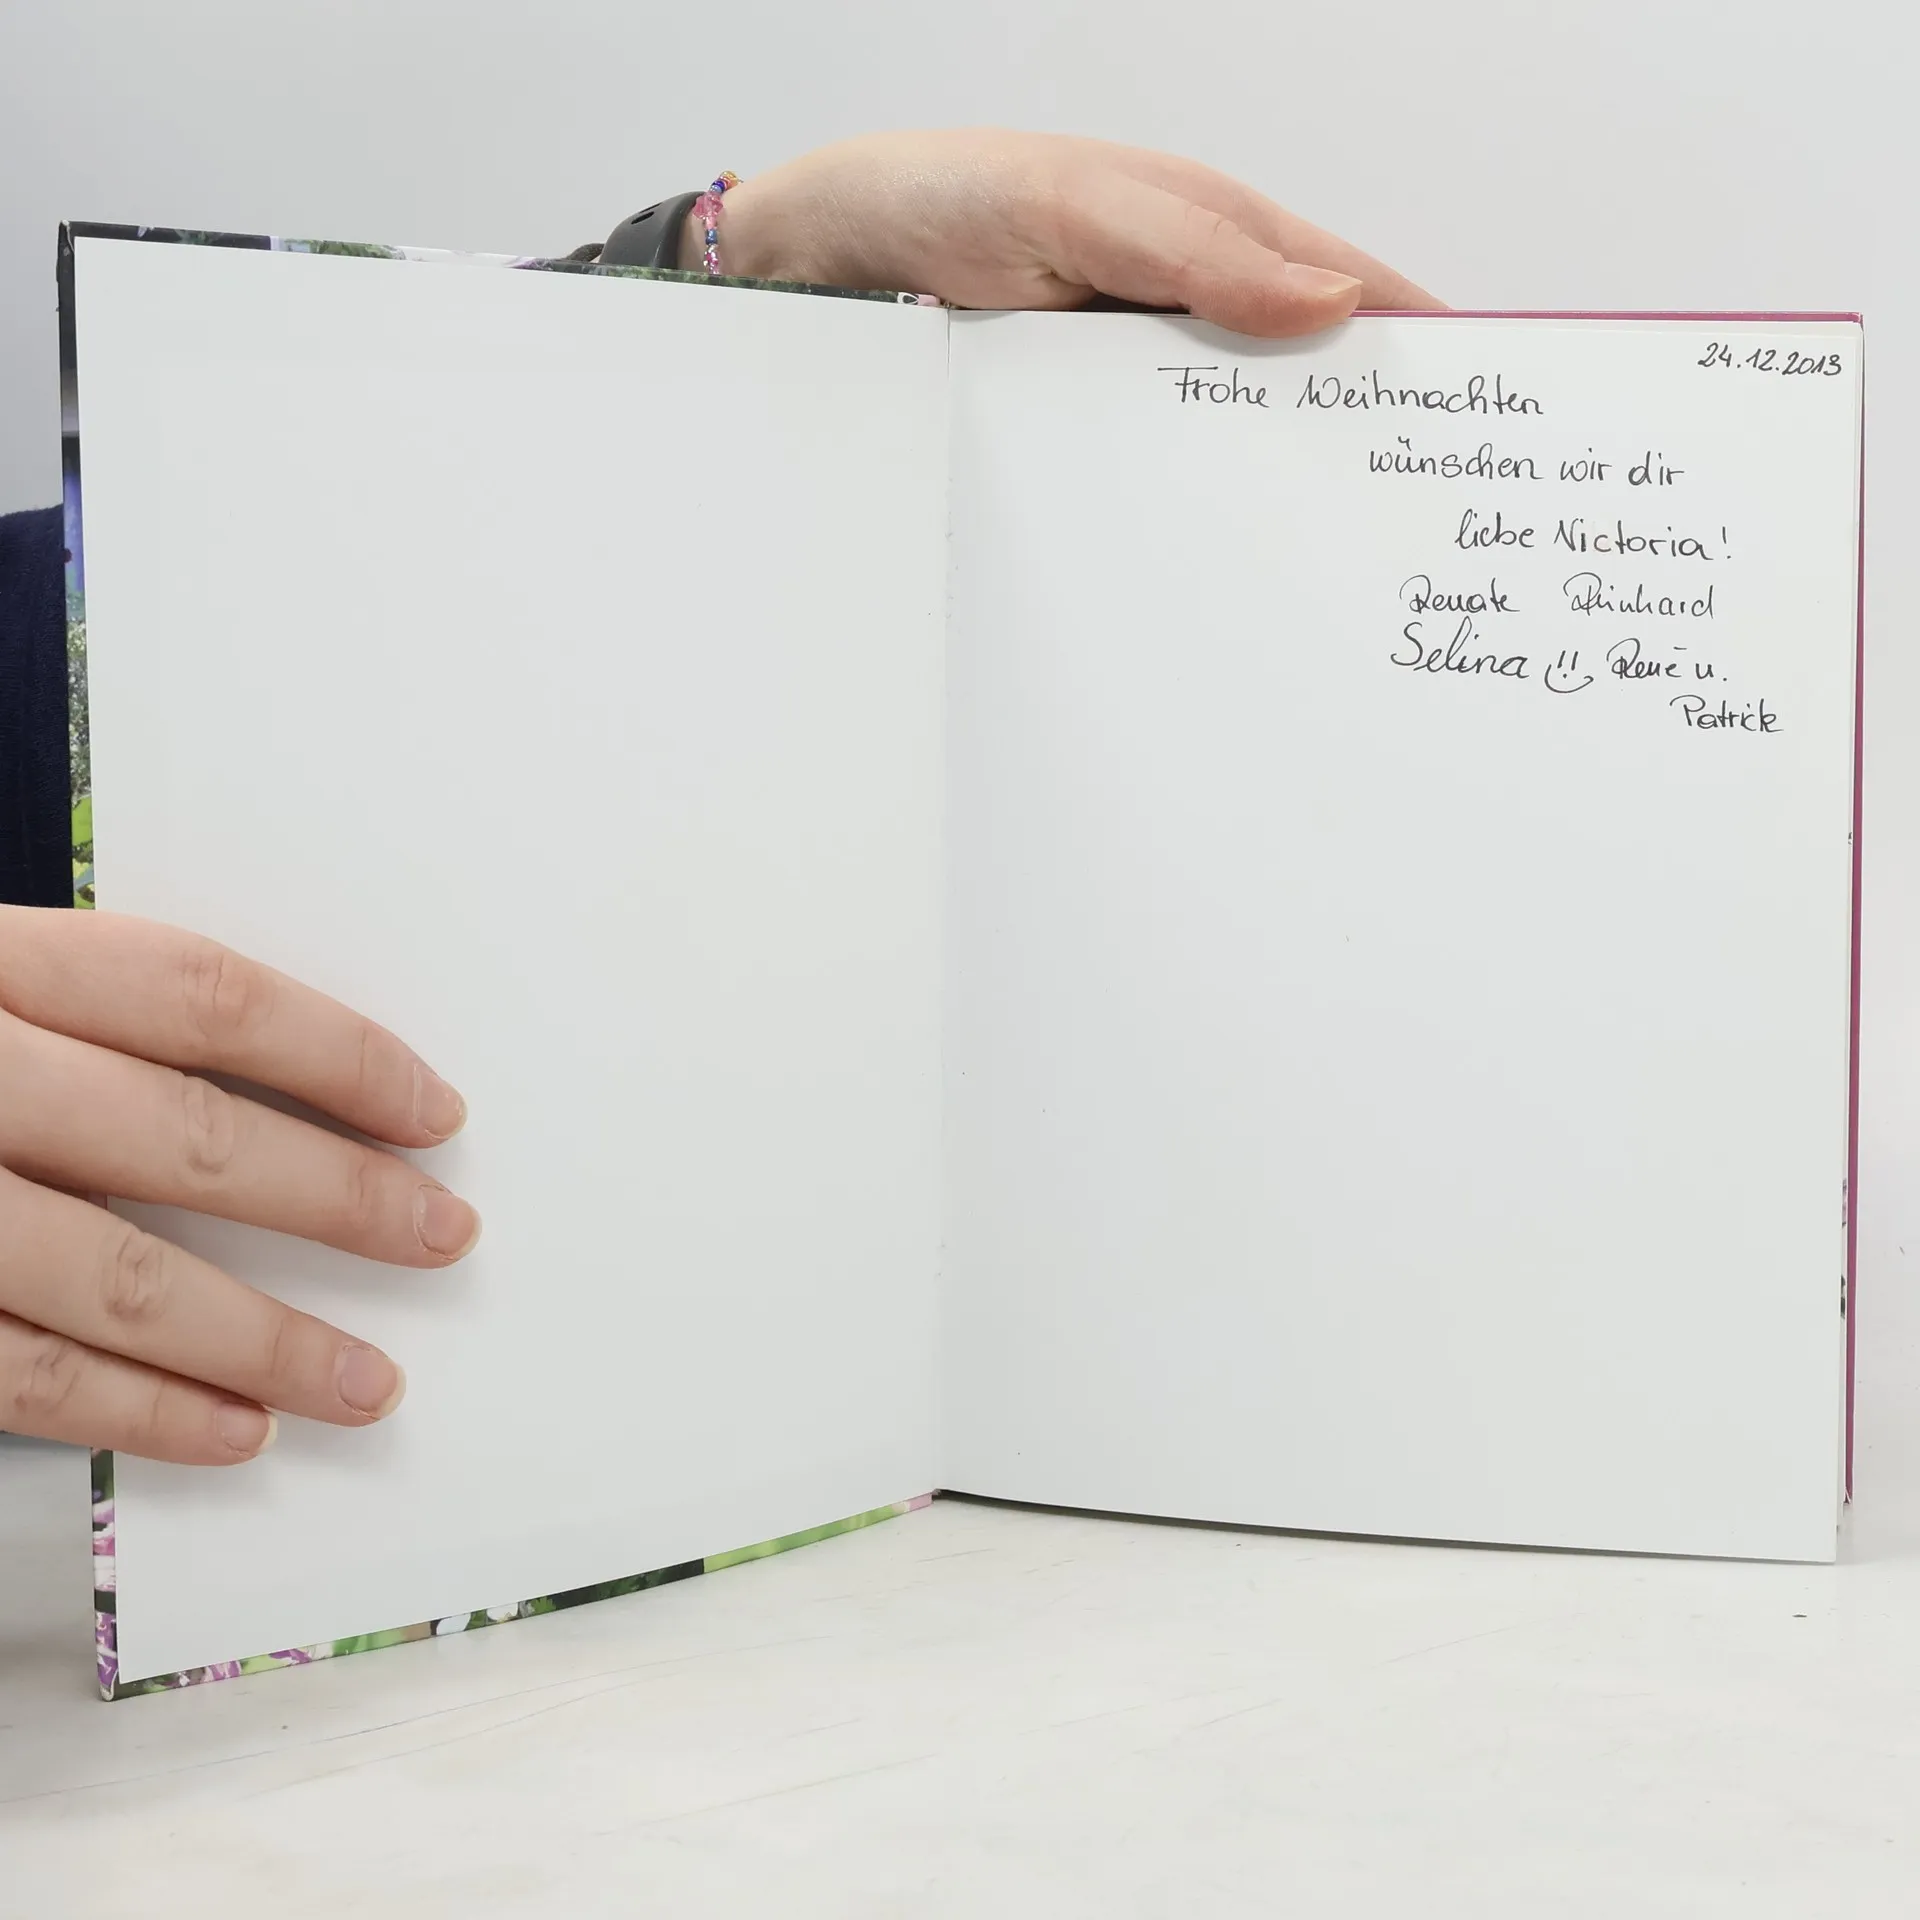 24.12.2013
Frohe Weihnachten
wünschen wir dir
liebe Victoria!
Renate Reinhard
Selina !! René u.
Patrick